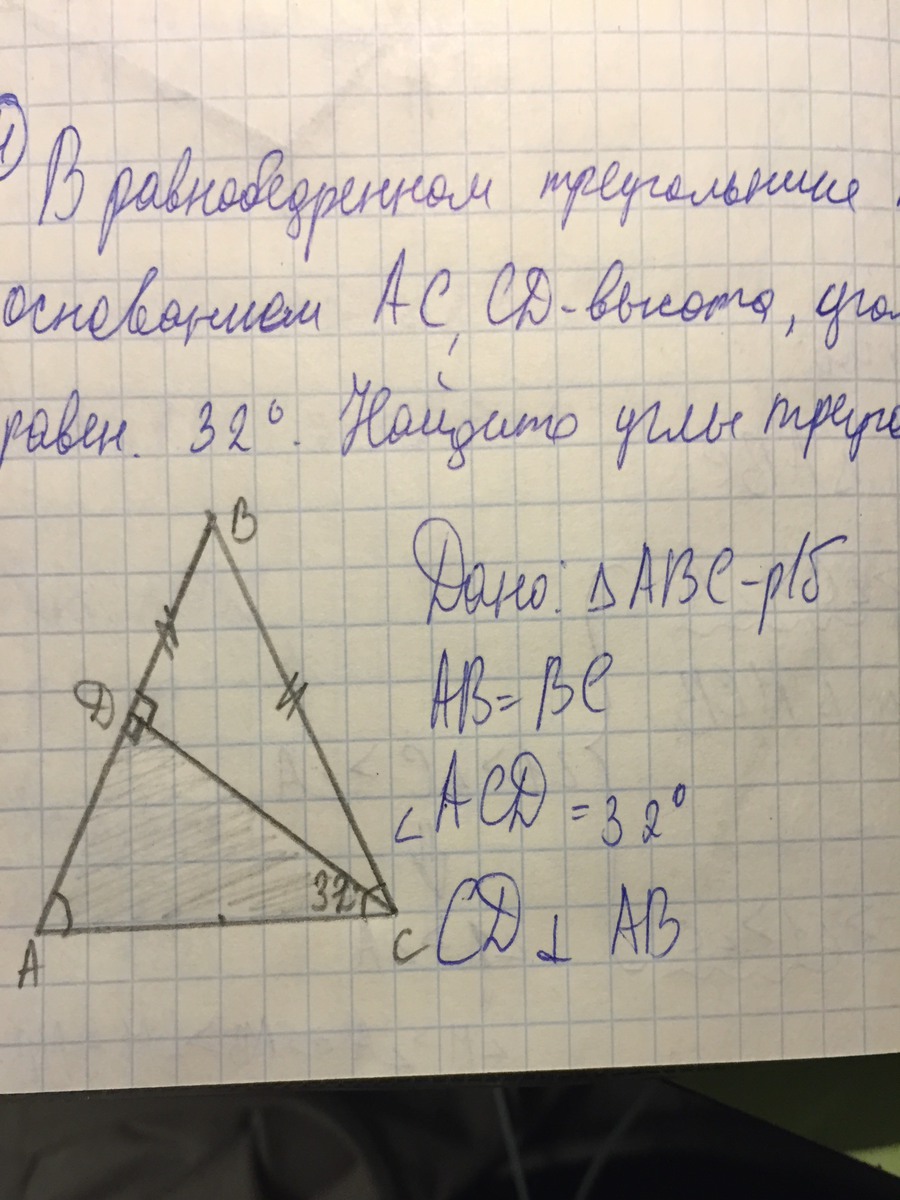 1
В равнобедренном треугольнике
основанием АС, CD-высота, угол
равен. 32°. Найдите углы треуго
B
Дано: ΔABC-р/б
AB=BC
D
∠ACD=32°
32°
CD⊥AB
A
C